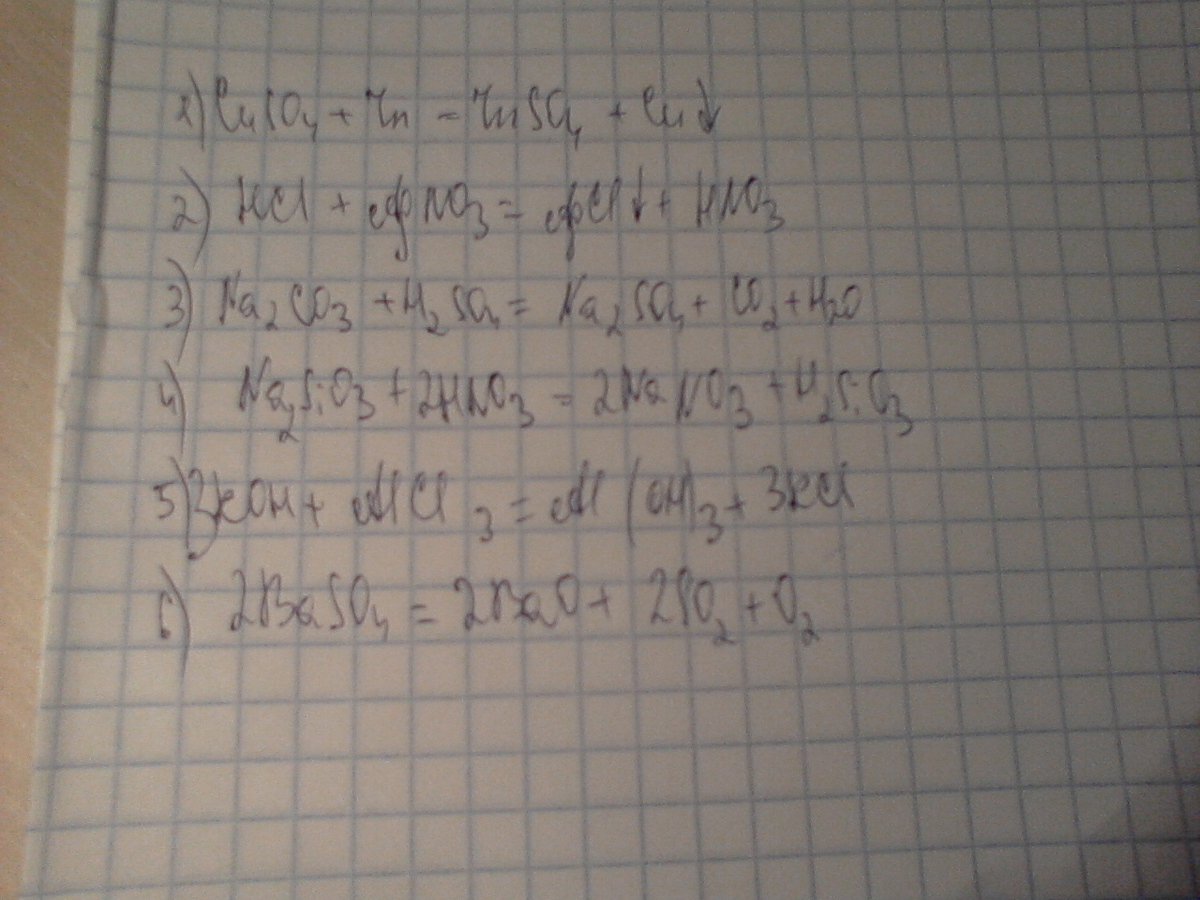 1) CuSO4 + Zn = ZnSO4 + Cu↓
2) HCl + AgNO3 = AgCl↓ + HNO3
3) Na2CO3 + H2SO4 = Na2SO4 + CO2 + H2O
4) Na2SiO3 + 2HNO3 = 2NaNO3 + H2SiO3
5) 3KOH + AlCl3 = Al(OH)3 + 3KCl
6) 2BaSO4 = 2BaO + 2SO2 + O2